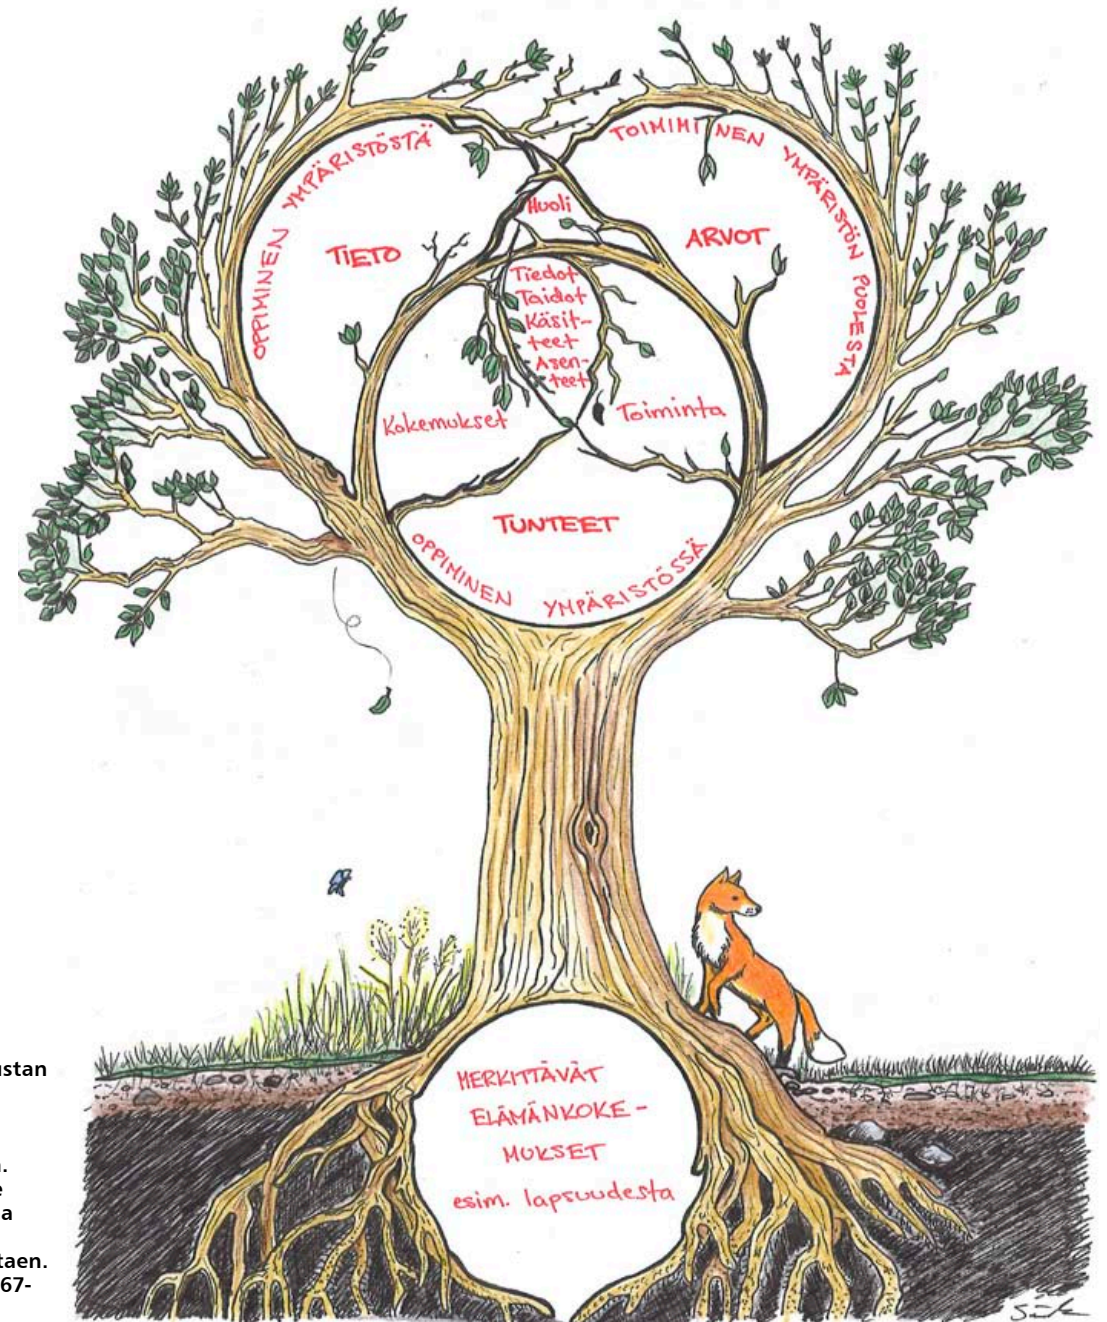 OPPIMINEN YMPÄRISTÖSTÄ
TOIMIMINEN YMPÄRISTÖN PUOLESTA
Huoli
TIETO
ARVOT
Tiedot
Taidot
Käsit-
teet
Asen-
teet
Kokemukset
Toiminta
TUNTEET
OPPIMINEN YMPÄRISTÖSSÄ
MERKITTÄVÄT
ELÄMÄNKOKE-
MUKSET
esim. lapsuudesta
ustan
67-